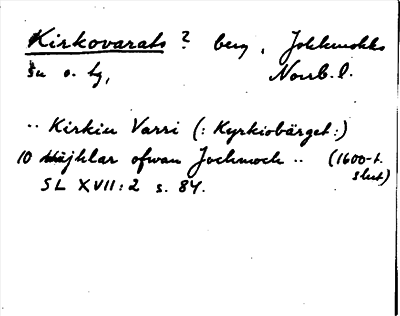 Kirkovarats ? berg, Jokkmokks
sn o. tg, Norrb. l.
.. Kirkiu Varri (: Kyrkiobärget :)
10 Mijhlar ofwan Jochmoch .. (1600-t.
slut)
SL XVII:2 s. 84.